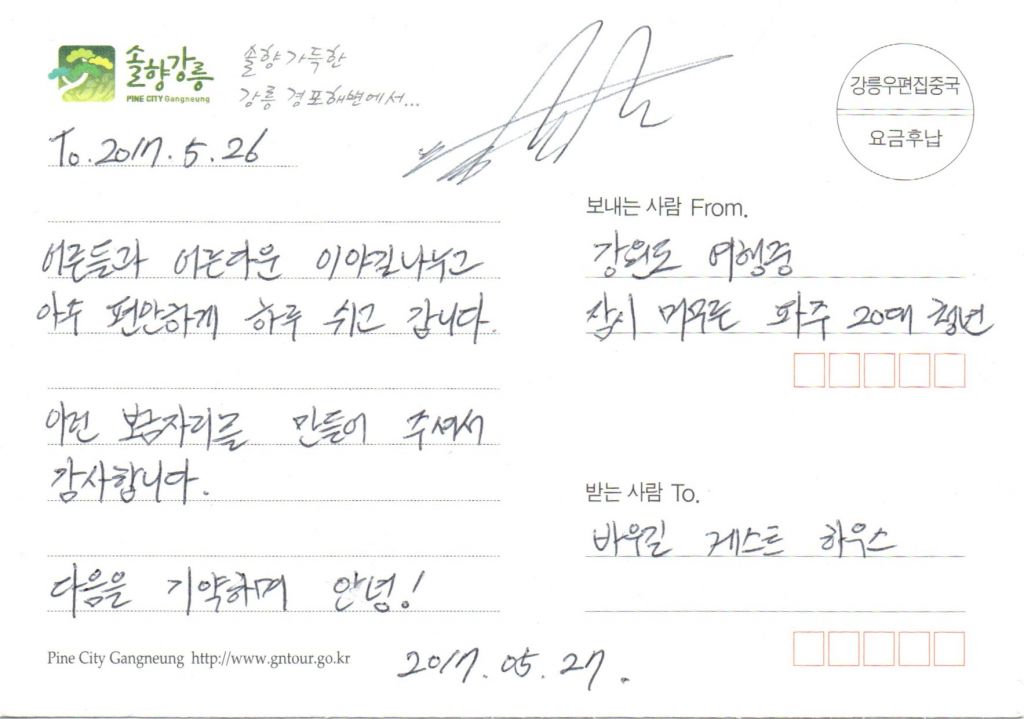 솔향강릉
PINE CITY Gangneung
솔향 가득한
강릉 경포해변에서...
To. 2017. 5. 26
어른들과 어른다운 이야길 나누고
아주 편안하게 하루 쉬고 갑니다.
이런 보금자리를 만들어 주셔서
감사합니다.
다음을 기약하며 안녕!
Pine City Gangneung http://www.gntour.go.kr
2017. 05. 27.
강릉우편집중국
요금후납
보내는 사람 From.
강원도 여행중
잠시 머무른 파주 20대 청년
받는 사람 To.
바우길 게스트 하우스